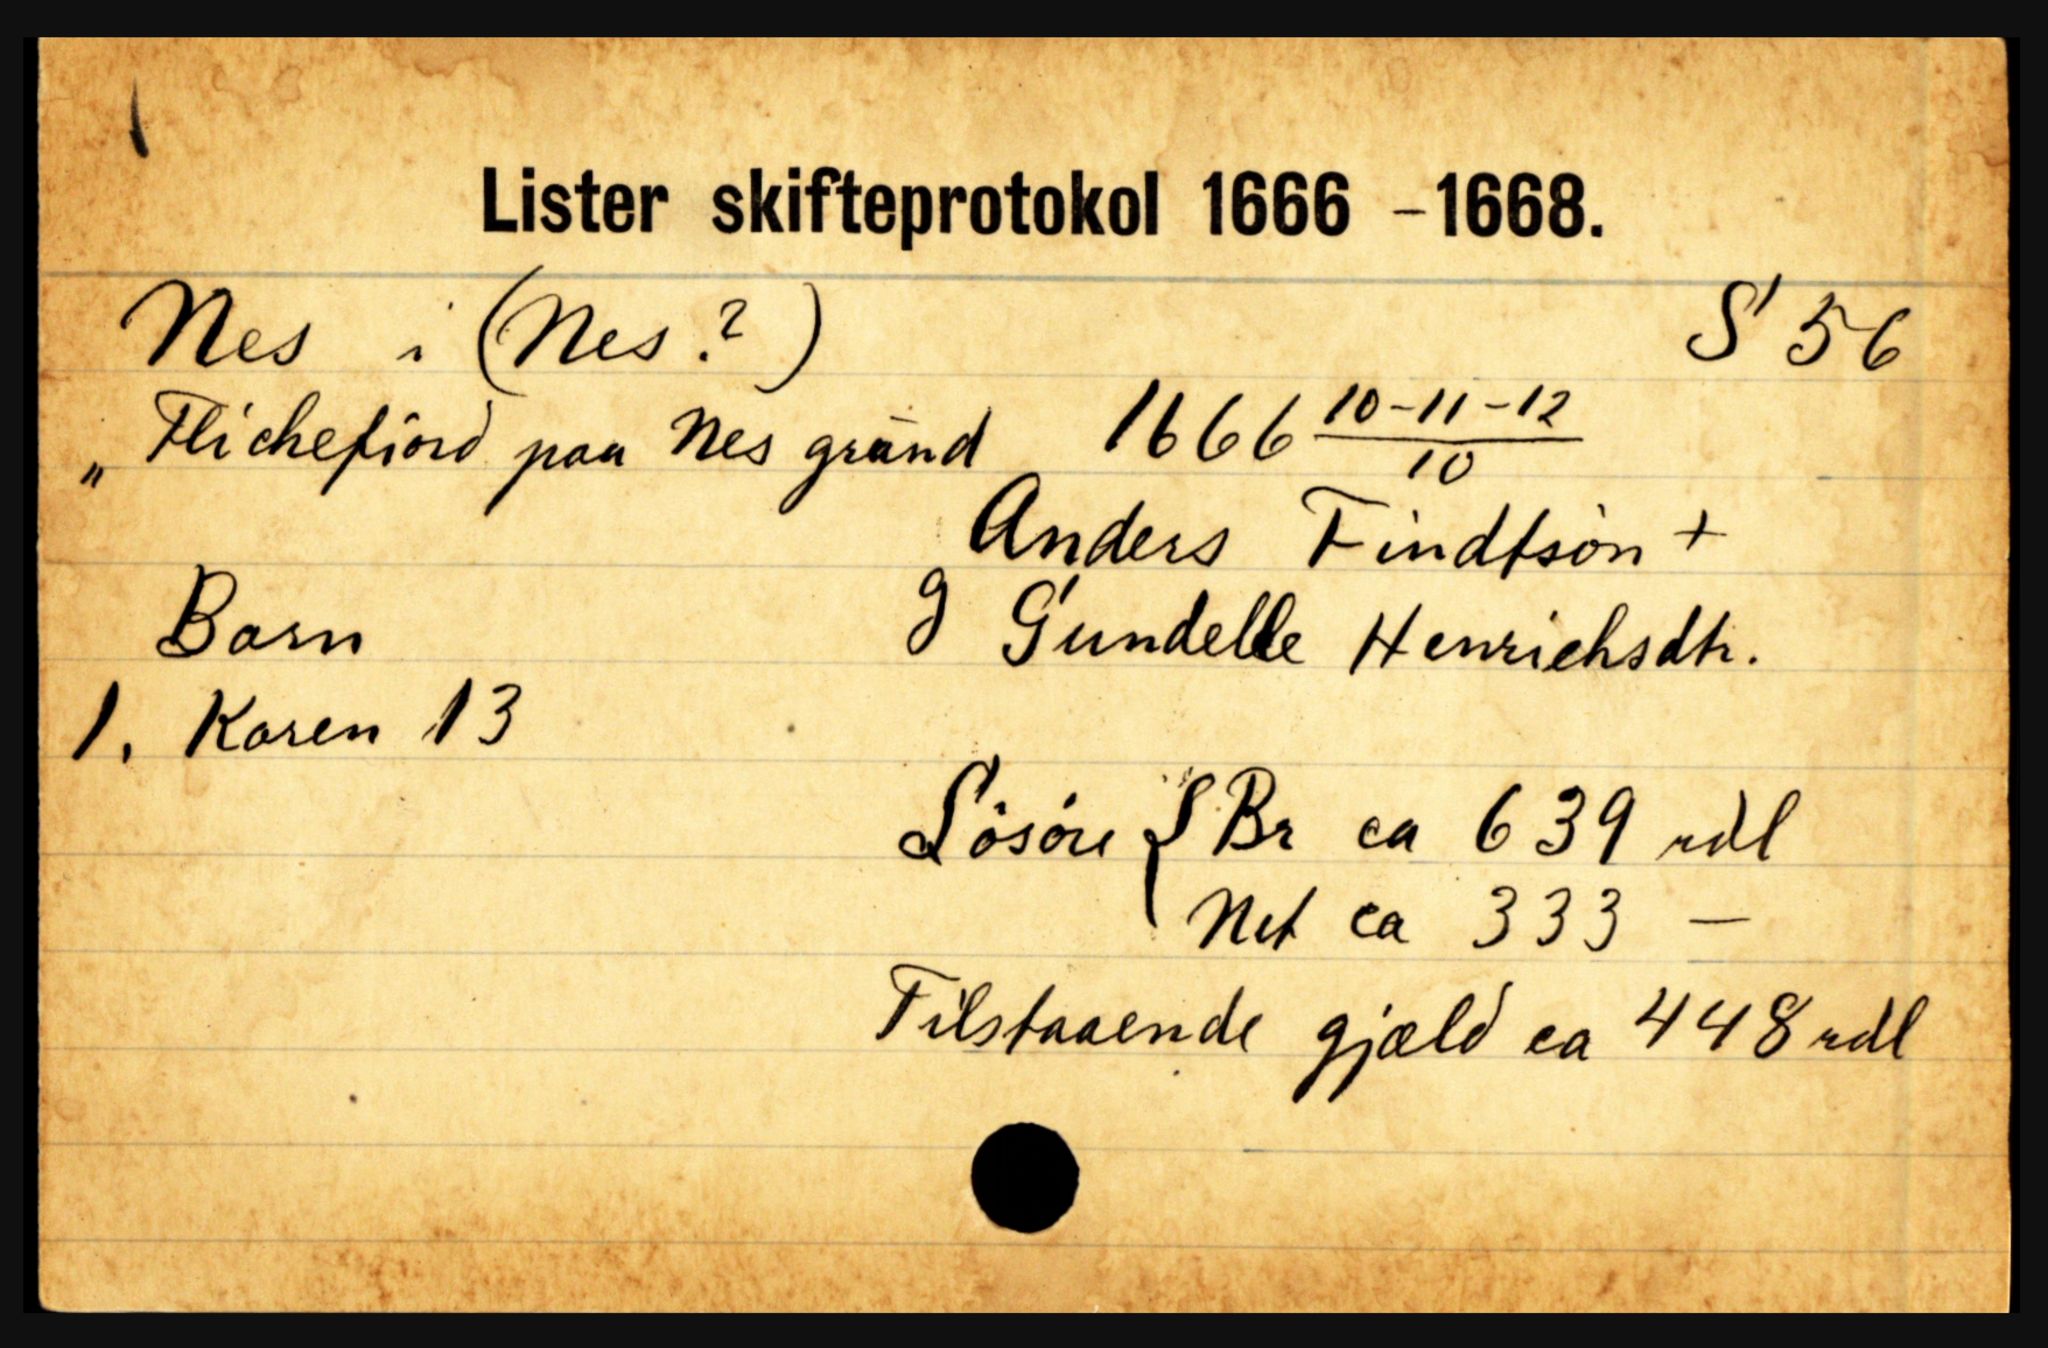 Lister skifteprotokol 1666 - 1668.
Nes i (Nes?) S 56
„ Flichefiord paa Nes gründ 1666 10-11-12/10
Anders Findtsøn +
Barn g Gundelle Henrichsdtr.
1. Karen 13
Løsøre { Br ca 639 rdl
Net ca 333 —
Tilstaaende gjæld ca 448 rdl